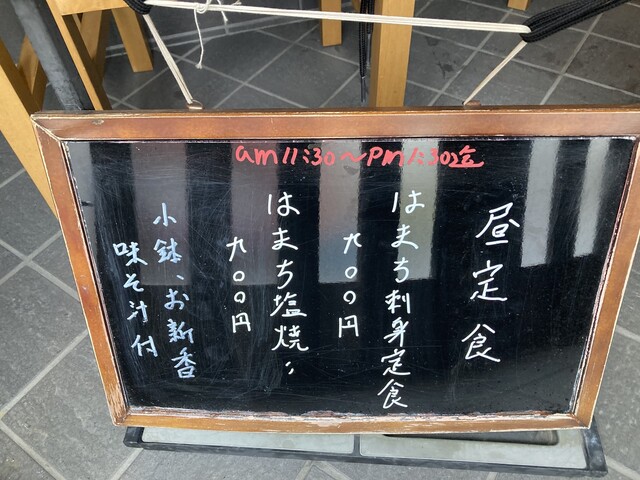 am11:30〜pm1:30迄
昼定食
はまち刺身定食
九〇〇円
はまち塩焼〃
九〇〇円
小鉢、お新香
味そ汁付